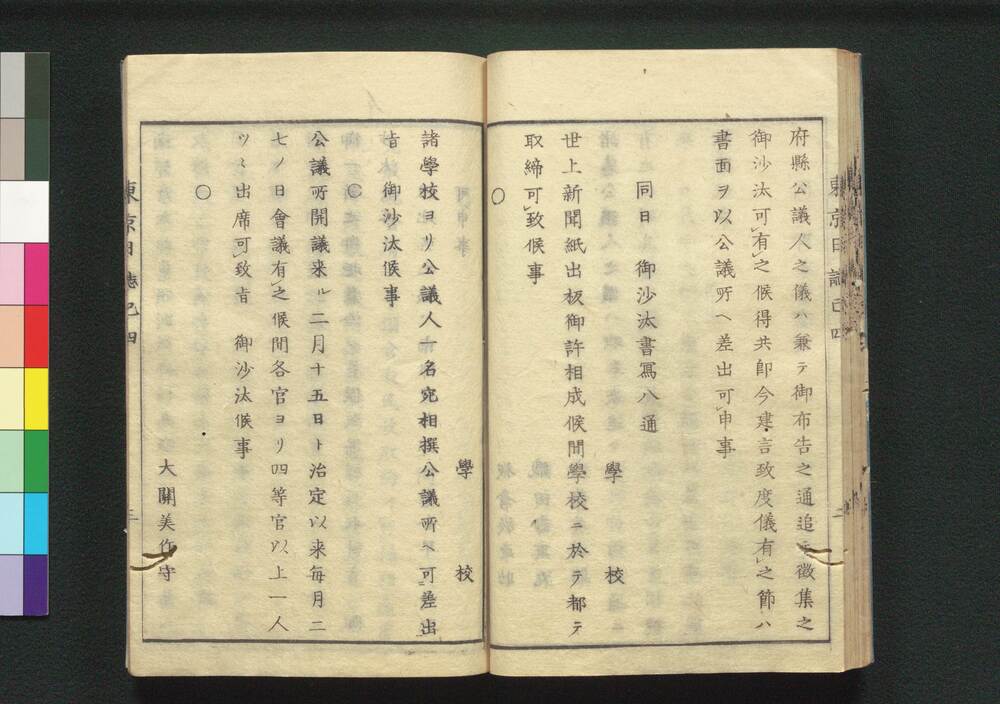 東京日誌己四
府縣公議人之儀ハ兼テ御布告之通追テ徴集之
御沙汰可有之候得共即今建言致度儀有之節ハ
書面ヲ以公議所ヘ差出可申事
同日 御沙汰書冩八通
學校
世上新聞紙出板御許相成候間學校ニ於テ都テ
取締可致候事
○
學校
諸學校ヨリ公議人一名宛相撰公議所ヘ可差出
旨 御沙汰候事
○
公議所開議来ル二月十五日ト治定以来毎月二
七ノ日會議有之候間各官ヨリ四等官以上一人
ツヽ出席可致旨 御沙汰候事
○
大關美作守
東京日誌己四
三